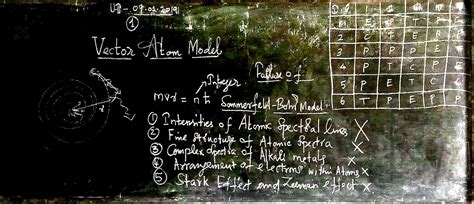 U8-09.01.2019
①
Vector Atom Model
Integer
Failure of
mvr = nħ Sommerfeld-Bohr Model-
① Intensities of Atomic Spectral lines X
② Fine structure of Atomic Spectra X
③ Complex spectra of Alkali metals X
④ Arrangement of electrons within Atoms X
⑤ Stark Effect and Zeeman effect X
2 C T E
3 P P D E
4 P T C P
5 P E T C
6 T P E P